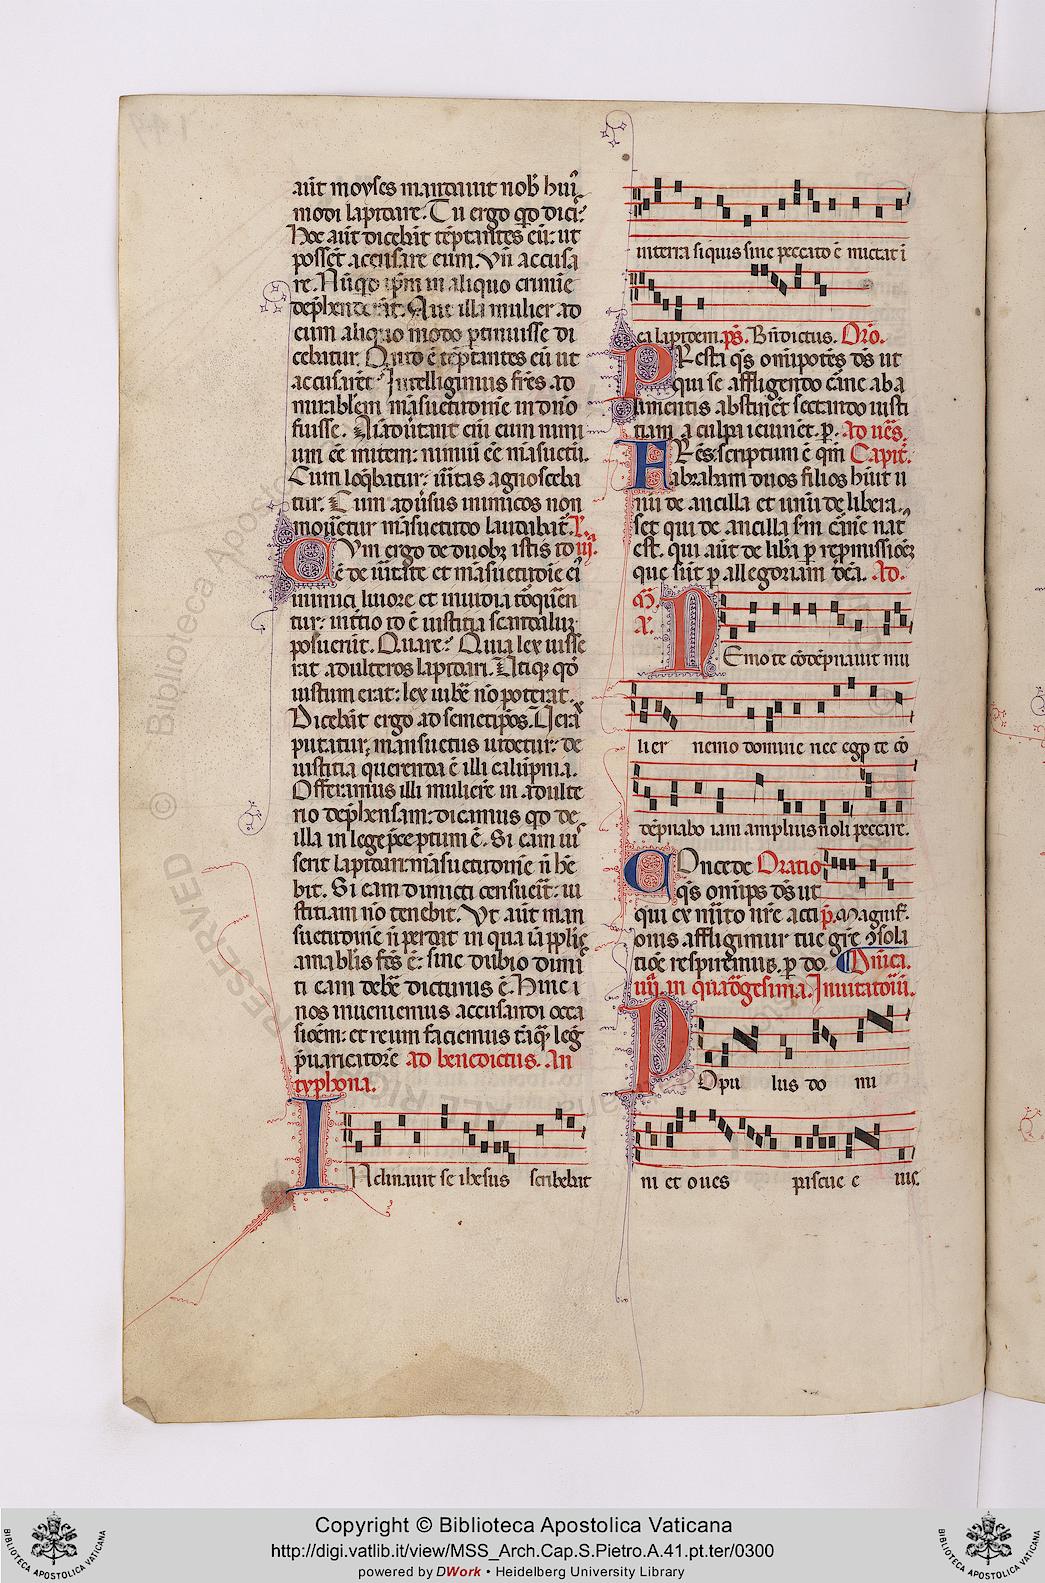 aut̄ moyses mandauit nob̄ hui
modi lapidare. Tu ergo qd̄ dicis
Hec aut̄ dicebāt tēptantes eū: ut
possēt accusare eum. Vn̄ accusa
re. Nūqd̄ ip̄m in aliquo crimīe
dep̄henderāt. Aut illa mulier ad
eum aliquo modo ꝑtinuisse di
cebatur. Quid ē tēptantes eū ut
accusarēt. Intelligimus fr̄es ad
mirabilem māsuetudinē in dn̄o
fuisse. Aīaduertāt eū eum nimi
um eē mitem: nimiū eē māsuetū.
Cum loq̄batur: ūitas agnosceba
tur. Cum adūsus inimicos non
mouētur māsuetudo laudabat̄.
Cum ergo de duobꝫ istis id iii.
ē de ūitate et māsuetudīe ei
inimici liuore et inuidia torquēn
tur: in tertio id ē iustitia scandalū
posuerūt. Quare? Quia lex iusse
rat adulteros lapidari. Utiqꝫ qd̄
iustum erat: lex iubē nō poterat.
Dicebāt ergo ad semetipsos. Uera
putatur, mansuetus uidetur: de
iustitia querenda ē illi calūpnia.
Offeramus illi muliere in adulte
rio dep̄hensam: dicamus qd̄ de
illa in lege p̄ceptum ē. Si eam ius
serit lapidari: māsuetudinē n̄ hē
bit. Si eam dimitti censuerit: iu
stitiam nō tenebit. Ut aut̄ man
suetudinē n̄ perdat in qua iā ppl̄is
amabilis fc̄s ē: sine dubio dimit
ti eam debē dicturus ē. Hinc i
nos inuenimus accusandi occa
sioēm: et reum faciemus tāqꝫ leḡ
p̄uaricatorē Ad benedictus. An
typhona.
INclinauit se ihesus scribebat
in terra siquis sine peccato ē mittat ī
ea lapidem. ps̄. Bn̄dictus. Or̄o.
PResta qs̄ omīpotēs ds̄ ut
qui se affligendo carne ab a
limentis abstinēt sectando iusti
tiam a culpa ieiunēt. p. Ad ues̄.
FRes scriptum ē qm̄ Capit̄.
abraham duos filios hūit u
nū de ancilla et unū de libera.
sed qui de ancilla sm̄ carnē nat̄
est. qui aut̄ de libā ꝑ repmissionē
que sūt ꝑ allegoriam dc̄a. Ad.
M̄.
A.
NEmo te cōdēpnauit mu
lier nemo domine nec ego te cō
dēpnabo iam amplius noli peccare.
COncede Oratio
qs̄ omīps ds̄ ut
qui ex mīto nr̄e acti p̄. Magnif̄.
onis affligimur tue gr̄e ɔ̄sola
tiōe respiremus. p do. Dn̄ica.
iiii. in quadragesima. Inuitatoriū.
POpu lus do mi
ni et oues pascue e ius.
Copyright © Biblioteca Apostolica Vaticana
http://digi.vatlib.it/view/MSS_Arch.Cap.S.Pietro.A.41.pt.ter/0300
powered by DWork • Heidelberg University Library
BIBLIOTECA APOSTOLICA VATICANA
BIBLIOTECA APOSTOLICA VATICANA